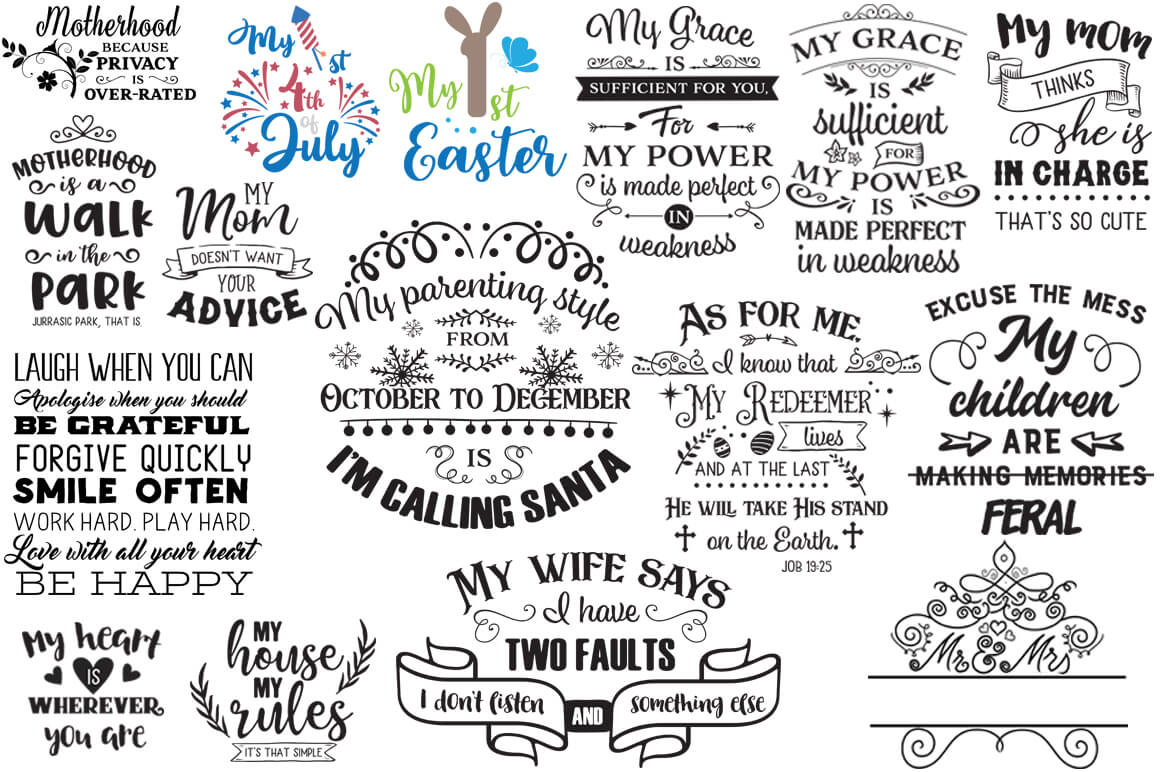 Motherhood
BECAUSE
PRIVACY
IS
OVER-RATED
My 1st
4th
of
July
My 1st
Easter
My Grace
IS
SUFFICIENT FOR YOU,
For
MY POWER
is made perfect
IN
weakness
MY GRACE
IS
sufficient
FOR
MY POWER
IS
MADE PERFECT
in weakness
My mom
THINKS
she is
IN CHARGE
THAT'S SO CUTE
MOTHERHOOD
is a
WALK
in the
PARK
JURRASIC PARK, THAT IS.
MY
Mom
DOESN'T WANT
YOUR
ADVICE
My parenting style
FROM
OCTOBER TO DECEMBER
IS
I'M CALLING SANTA
AS FOR ME,
I know that
MY REDEEMER
lives
AND AT THE LAST
HE WILL TAKE HIS STAND
on the Earth.
JOB 19:25
EXCUSE THE MESS
My
children
ARE
MAKING MEMORIES
FERAL
LAUGH WHEN YOU CAN
Apologise when you should
BE GRATEFUL
FORGIVE QUICKLY
SMILE OFTEN
WORK HARD. PLAY HARD.
Love with all your heart
BE HAPPY
My heart
IS
WHEREVER
you are
MY
house
MY
rules
IT'S THAT SIMPLE
MY WIFE SAYS
I have
TWO FAULTS
I don't listen
AND
something else
Mr & Mrs